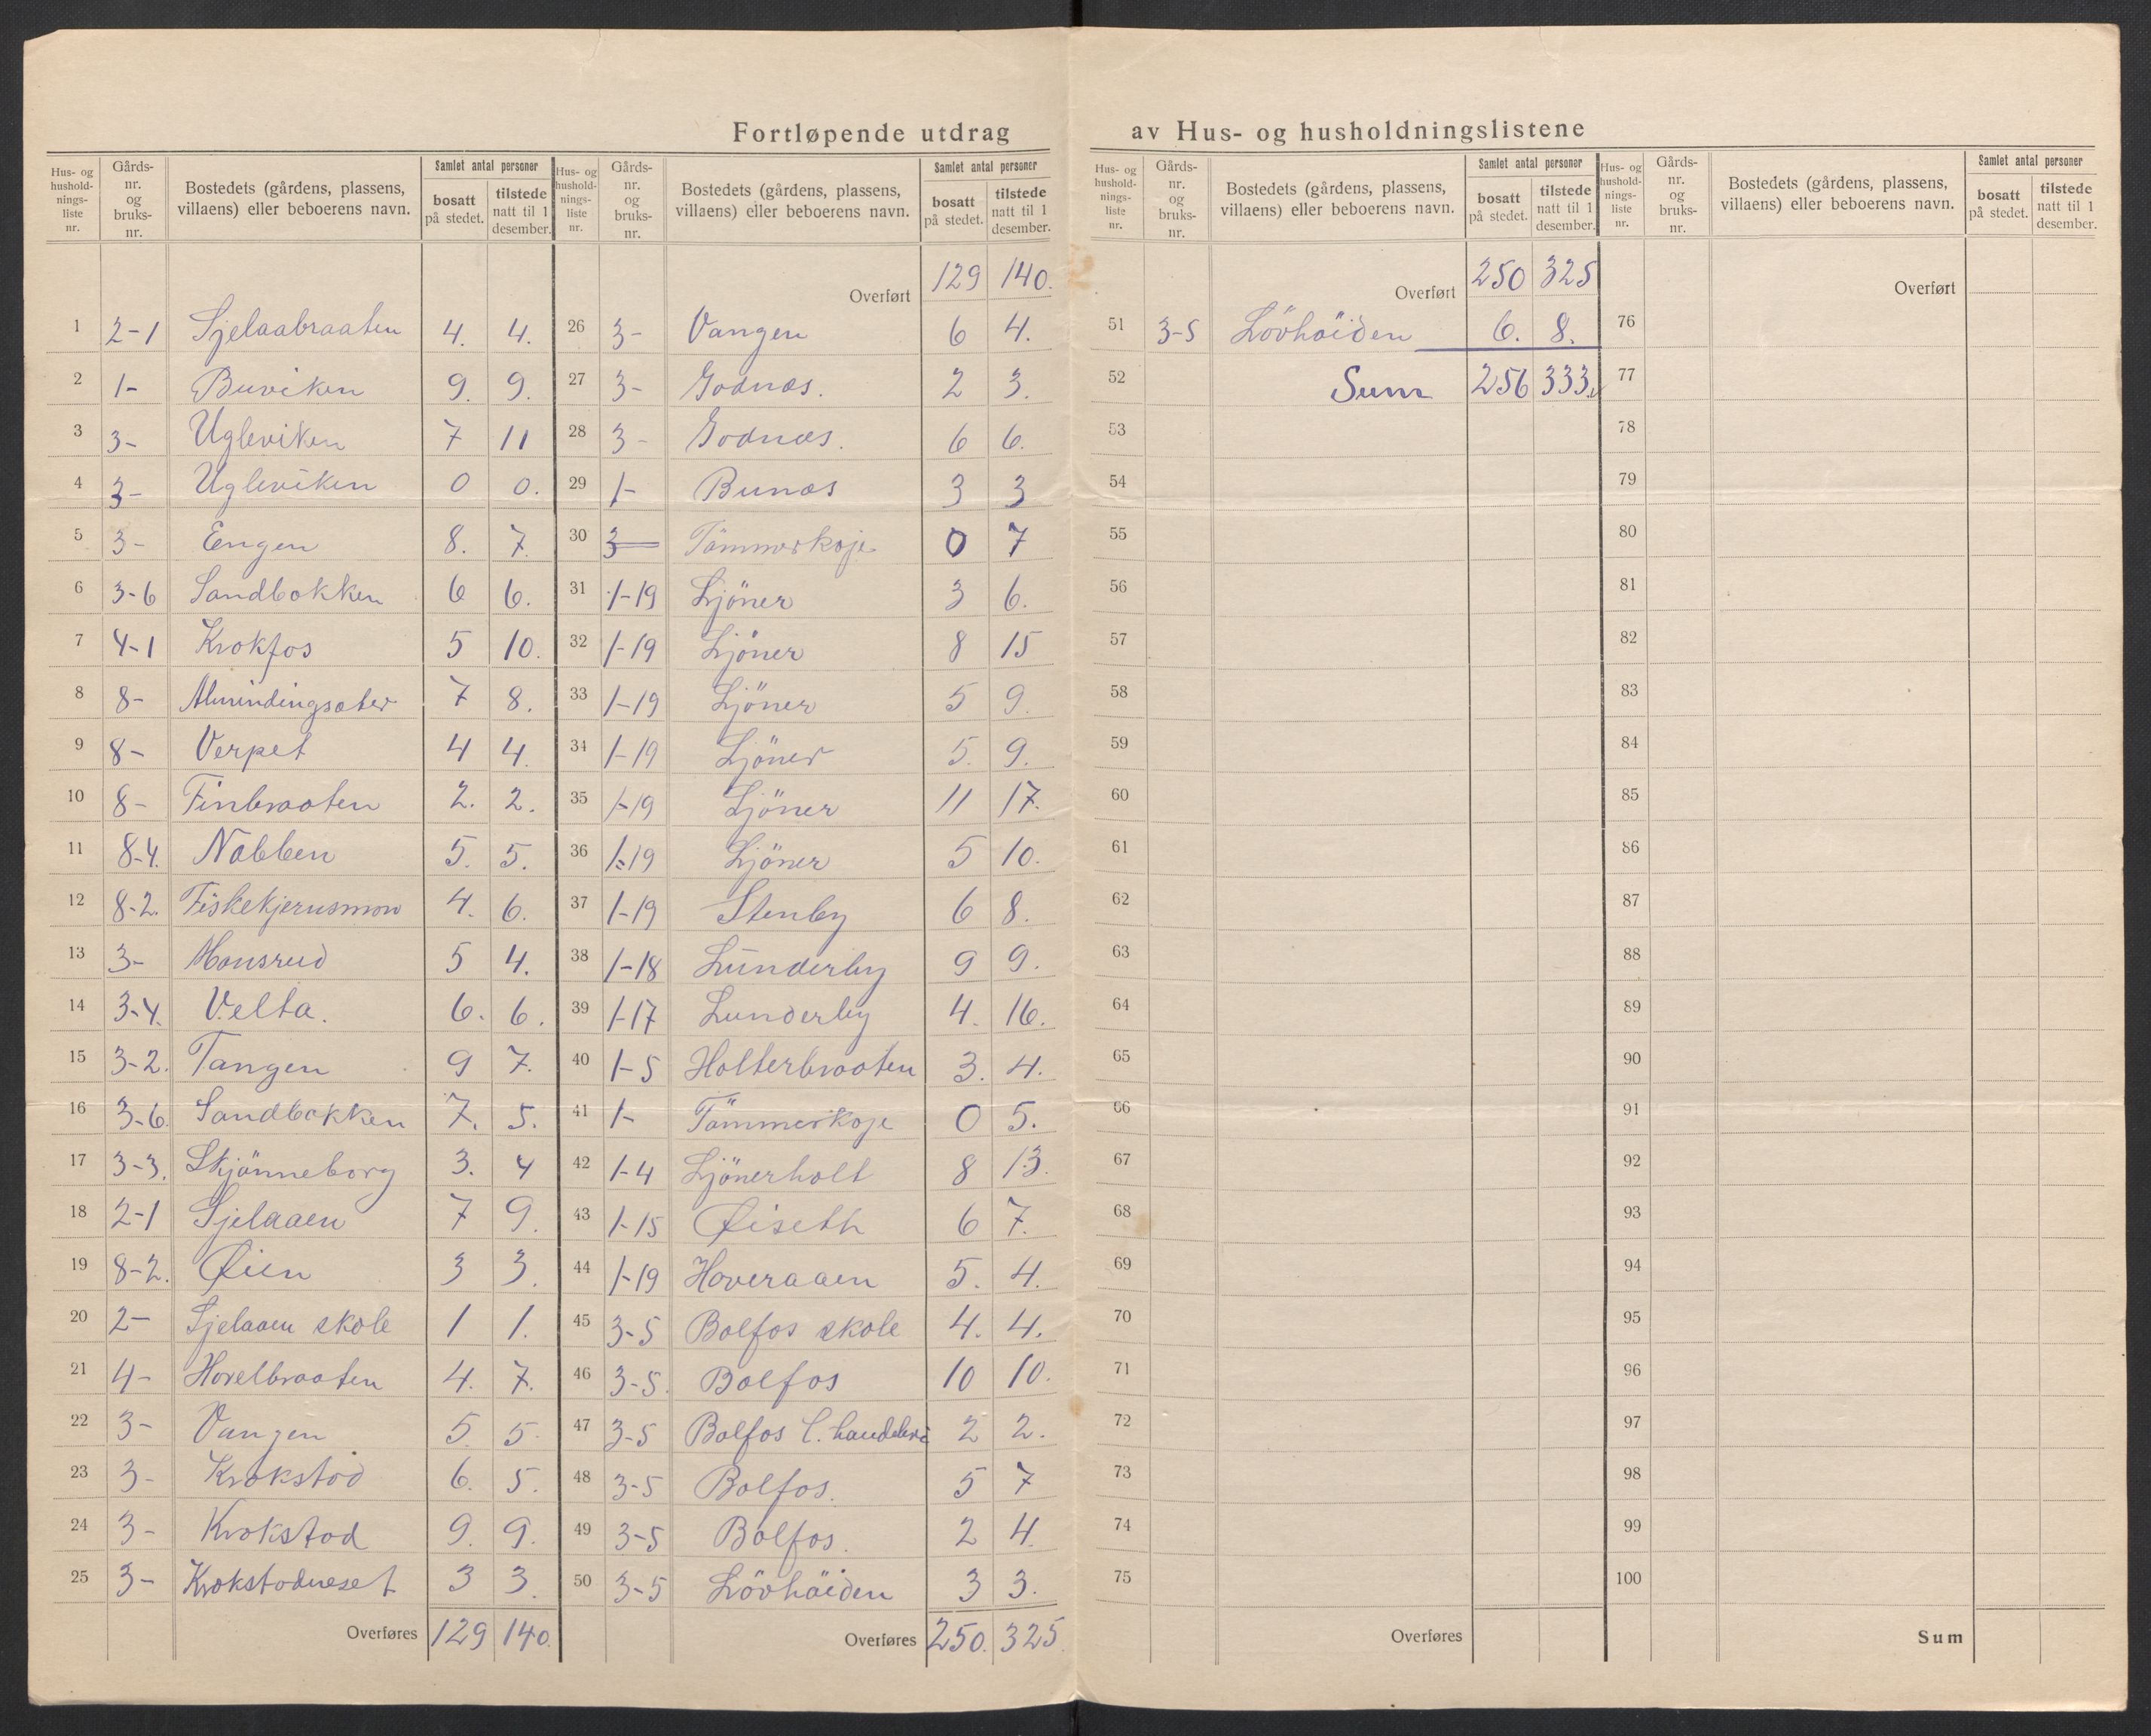 Fortløpende utdrag av Hus- og husholdningslistene
Hus- og hushold-nings-liste nr. | Gårds-nr. og bruks-nr. | Bostedets (gårdens, plassens, villaens) eller beboerens navn. | Samlet antal personer | bosatt på stedet. | tilstede natt til 1 desember.
1 2-1 Sjelaabraaten 4. 4.
2 1- Buviken 9. 9.
3 3- Ugleviken 7 11
4 3- Ugleviken 0 0.
5 3- Engen 8. 7.
6 3-6 Sandbakken 6 6.
7 4-1 Krokfos 5 10.
8 8- Almindingsæter 7 8.
9 8- Verpet 4 4.
10 8- Finbraaten 2. 2.
11 8-4. Nabben 5. 5.
12 8-2. Fiskekjernsmon 4. 6.
13 3- Hansrud 5 4.
14 3-4. Velta. 6. 6.
15 3-2. Tangen 9 7.
16 3-6. Sandbakken 7. 5.
17 3-3. Skjönneborg 3. 4
18 2-1 Sjelaaen 7 9.
19 8-2. Øien 3 3.
20 2- Sjelaaen skole 1 1.
21 4- Hovelbraaten 4. 7.
22 3- Vangen 5 5.
23 3- Krokstod 6. 5.
24 3- Krokstod 9. 9.
25 3- Krokstodneset 3 3.
Overføres 129 140.
Hus- og hushold-nings-liste nr. | Gårds-nr. og bruks-nr. | Bostedets (gårdens, plassens, villaens) eller beboerens navn. | Samlet antal personer | bosatt på stedet. | tilstede natt til 1 desember.
Overført 129 140.
26 3- Vangen 6 4.
27 3- Godnæs. 2 3.
28 3- Godnæs. 6 6.
29 1- Bunæs 3 3
30 3 Tömmerkoje 0 7
31 1-19 Ljöner 3 6.
32 1-19 Ljöner 8 15
33 1-19 Ljöner 5 9.
34 1-19 Ljöner 5. 9.
35 1-19 Ljöner 11 17.
36 1-19 Ljöner 5 10.
37 1-19 Stenby 6 8.
38 1-18 Lunderby 9 9.
39 1-17 Lunderby 4. 16.
40 1-5 Holterbraaten 3. 4.
41 1- Tömmerkoje 0 5.
42 1-4 Ljönerholt 8 13.
43 1-15 Øiseth 6 7.
44 1-19 Hoveraaen 5. 4.
45 3-5 Bolfos skole 4. 4.
46 3-5. Bolfos 10 10.
47 3-5 Bolfos 2 2.
48 3-5 Bolfos. 5 7
49 3-5 Bolfos. 2 4.
50 3-5 Lövhöiden 3 3.
Overføres 250. 325.
Hus- og hushold-nings-liste nr. | Gårds-nr. og bruks-nr. | Bostedets (gårdens, plassens, villaens) eller beboerens navn. | Samlet antal personer | bosatt på stedet. | tilstede natt til 1 desember.
Overført 250 325
51 3-5 Lövhöiden 6. 8.
52 Sum 256 333.
53
54
55
56
57
58
59
60
61
62
63
64
65
66
67
68
69
70
71
72
73
74
75
Overføres
Hus- og hushold-nings-liste nr. | Gårds-nr. og bruks-nr. | Bostedets (gårdens, plassens, villaens) eller beboerens navn. | Samlet antal personer | bosatt på stedet. | tilstede natt til 1 desember.
Overført
76
77
78
79
80
81
82
83
84
85
86
87
88
89
90
91
92
93
94
95
96
97
98
99
100
Sum